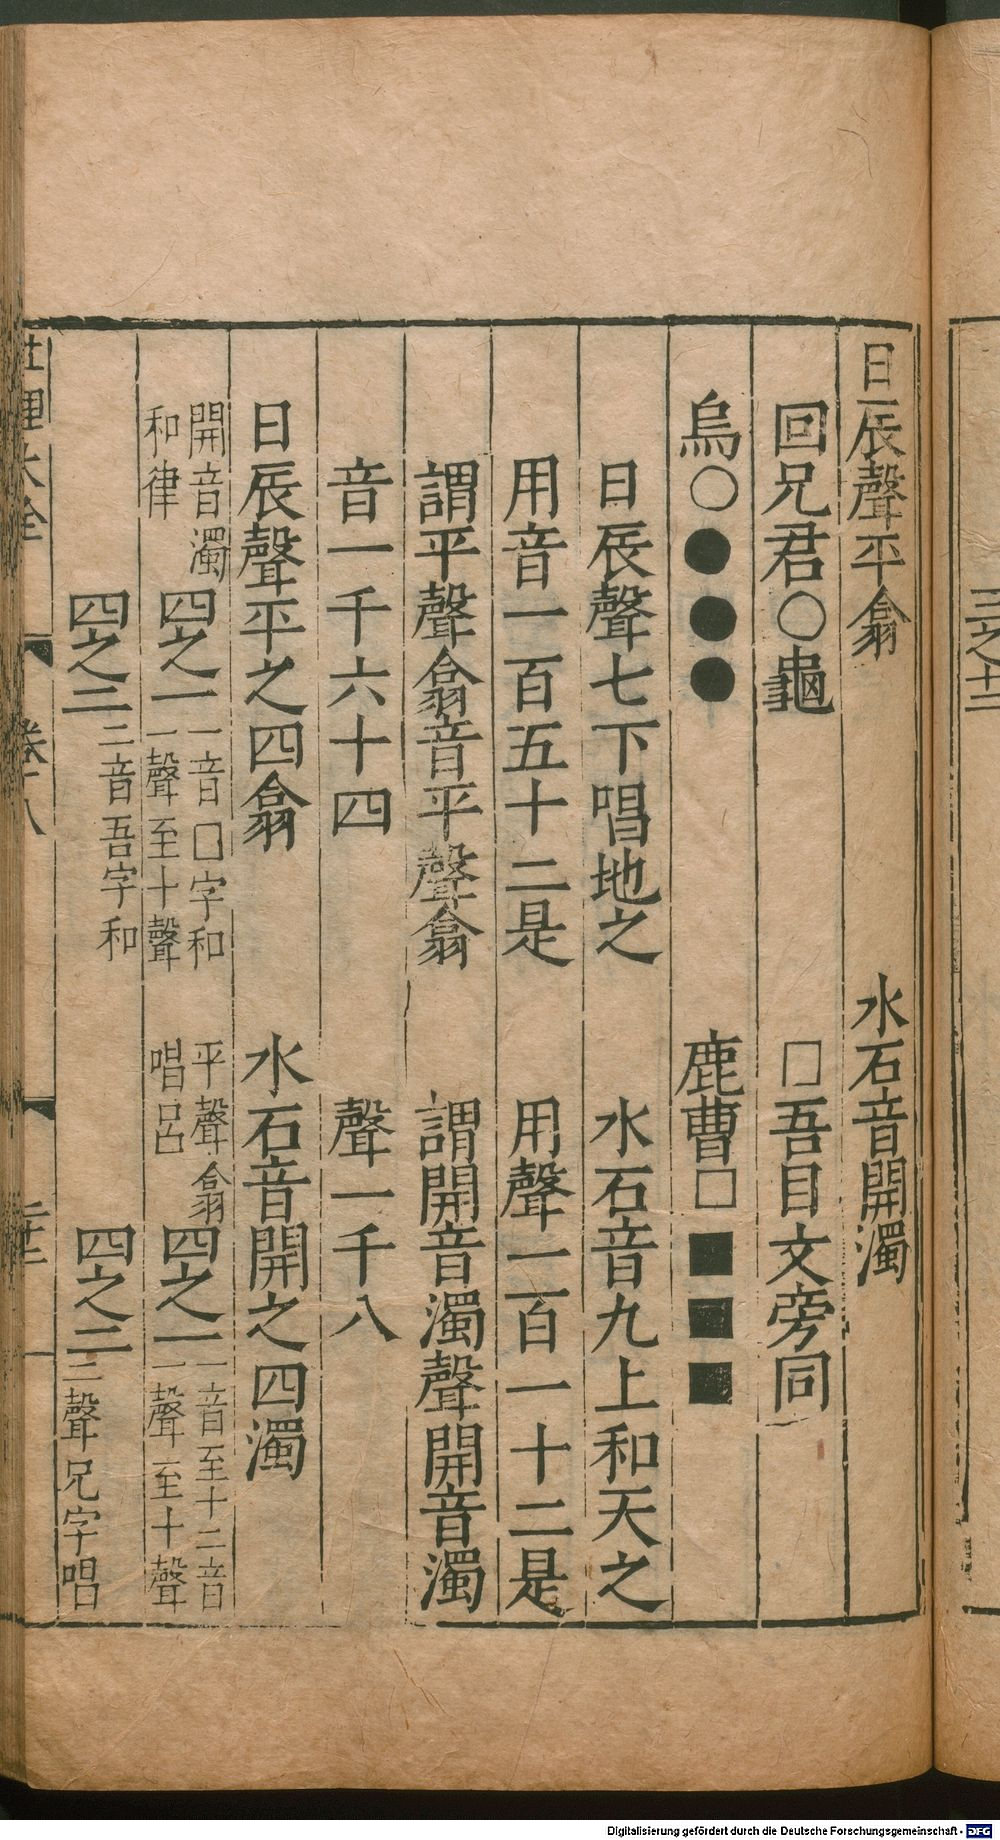 三之十二
日辰聲平翕　水石音開濁
回兄君○龜　□吾目文旁同
烏○●●●　鹿曹□■■■
日辰聲七下唱地之　水石音九上和天之
用音一百五十二是　用聲一百一十二是
謂平聲翕音平聲翕　謂開音濁聲開音濁
音一千六十四　聲一千八
日辰聲平之四翕　水石音開之四濁
開音濁和律　四之一　一音□字和一聲至十聲　平聲翕唱呂　四之一　一音至十二音一聲至十聲
四之二　二音吾字和　四之二　二聲兄字唱
性理大全　卷十八
Digitalisierung gefördert durch die Deutsche Forschungsgemeinschaft - DFG